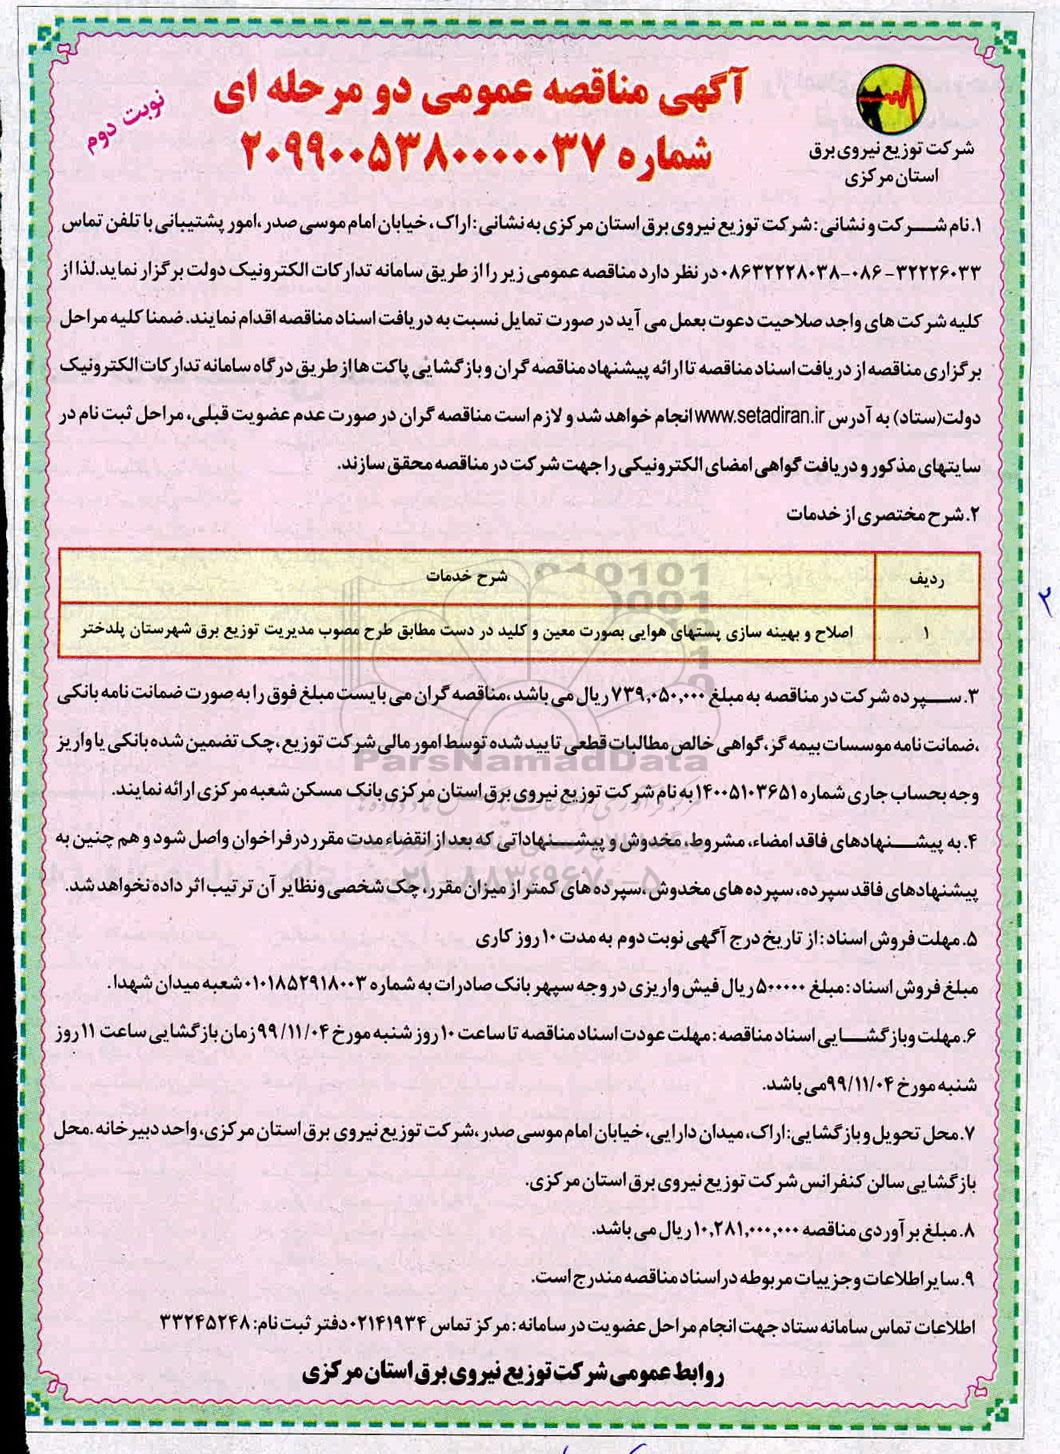 آگهی مناقصه عمومی دو مرحله ای
شماره ۲۰۹۹۰۰۵۳۸۰۰۰۰۰۳۷
نوبت دوم
شرکت توزیع نیروی برق
استان مرکزی
۱. نام شرکت و نشانی: شرکت توزیع نیروی برق استان مرکزی به نشانی: اراک، خیابان امام موسی صدر، امور پشتیبانی با تلفن تماس
۰۸۶-۳۲۲۲۶۰۳۳ - ۰۸۶۳۲۲۲۸۰۳۸ در نظر دارد مناقصه عمومی زیر را از طریق سامانه تدارکات الکترونیک دولت برگزار نماید. لذا از
کلیه شرکت های واجد صلاحیت دعوت بعمل می آید در صورت تمایل نسبت به دریافت اسناد مناقصه اقدام نمایند. ضمنا کلیه مراحل
برگزاری مناقصه از دریافت اسناد مناقصه تا ارائه پیشنهاد مناقصه گران و بازگشایی پاکت ها از طریق درگاه سامانه تدارکات الکترونیک
دولت (ستاد) به آدرس www.setadiran.ir انجام خواهد شد و لازم است مناقصه گران در صورت عدم عضویت قبلی، مراحل ثبت نام در
سایتهای مذکور و دریافت گواهی امضای الکترونیکی را جهت شرکت در مناقصه محقق سازند.
۲. شرح مختصری از خدمات
ردیف شرح خدمات
۱ اصلاح و بهینه سازی پستهای هوایی بصورت معین و کلید در دست مطابق طرح مصوب مدیریت توزیع برق شهرستان پلدختر
۳. سپرده شرکت در مناقصه به مبلغ ۷۳۹,۰۵۰,۰۰۰ ریال می باشد، مناقصه گران می بایست مبلغ فوق را به صورت ضمانت نامه بانکی
، ضمانت نامه موسسات بیمه گر، گواهی خالص مطالبات قطعی تایید شده توسط امور مالی شرکت توزیع، چک تضمین شده بانکی یا واریز
وجه بحساب جاری شماره ۱۴۰۰۵۱۰۳۶۵۱ به نام شرکت توزیع نیروی برق استان مرکزی بانک مسکن شعبه مرکزی ارائه نمایند.
۴. به پیشنهادهای فاقد امضاء، مشروط، مخدوش و پیشنهاداتی که بعد از انقضاء مدت مقرر در فراخوان واصل شود و هم چنین به
پیشنهادهای فاقد سپرده، سپرده های مخدوش، سپرده های کمتر از میزان مقرر، چک شخصی و نظایر آن ترتیب اثر داده نخواهد شد.
۵. مهلت فروش اسناد: از تاریخ درج آگهی نوبت دوم به مدت ۱۰ روز کاری
مبلغ فروش اسناد: مبلغ ۵۰۰۰۰۰ ریال فیش واریزی در وجه سپهر بانک صادرات به شماره ۰۱۰۱۸۵۲۹۱۸۰۰۳ شعبه میدان شهدا.
۶. مهلت و بازگشایی اسناد مناقصه: مهلت عودت اسناد مناقصه تا ساعت ۱۰ روز شنبه مورخ ۹۹/۱۱/۰۴ زمان بازگشایی ساعت ۱۱ روز
شنبه مورخ ۹۹/۱۱/۰۴ می باشد.
۷. محل تحویل و بازگشایی: اراک، میدان دارایی، خیابان امام موسی صدر، شرکت توزیع نیروی برق استان مرکزی، واحد دبیرخانه. محل
بازگشایی سالن کنفرانس شرکت توزیع نیروی برق استان مرکزی.
۸. مبلغ برآوردی مناقصه ۱۰,۲۸۱,۰۰۰,۰۰۰ ریال می باشد.
۹. سایر اطلاعات و جزییات مربوطه در اسناد مناقصه مندرج است.
اطلاعات تماس سامانه ستاد جهت انجام مراحل عضویت در سامانه: مرکز تماس ۰۲۱۴۱۹۳۴ دفتر ثبت نام: ۳۳۲۴۵۲۴۸
روابط عمومی شرکت توزیع نیروی برق استان مرکزی
ParsNamadData
۰۲۱-۸۸۳۴۹۶۷۰-۵
۲